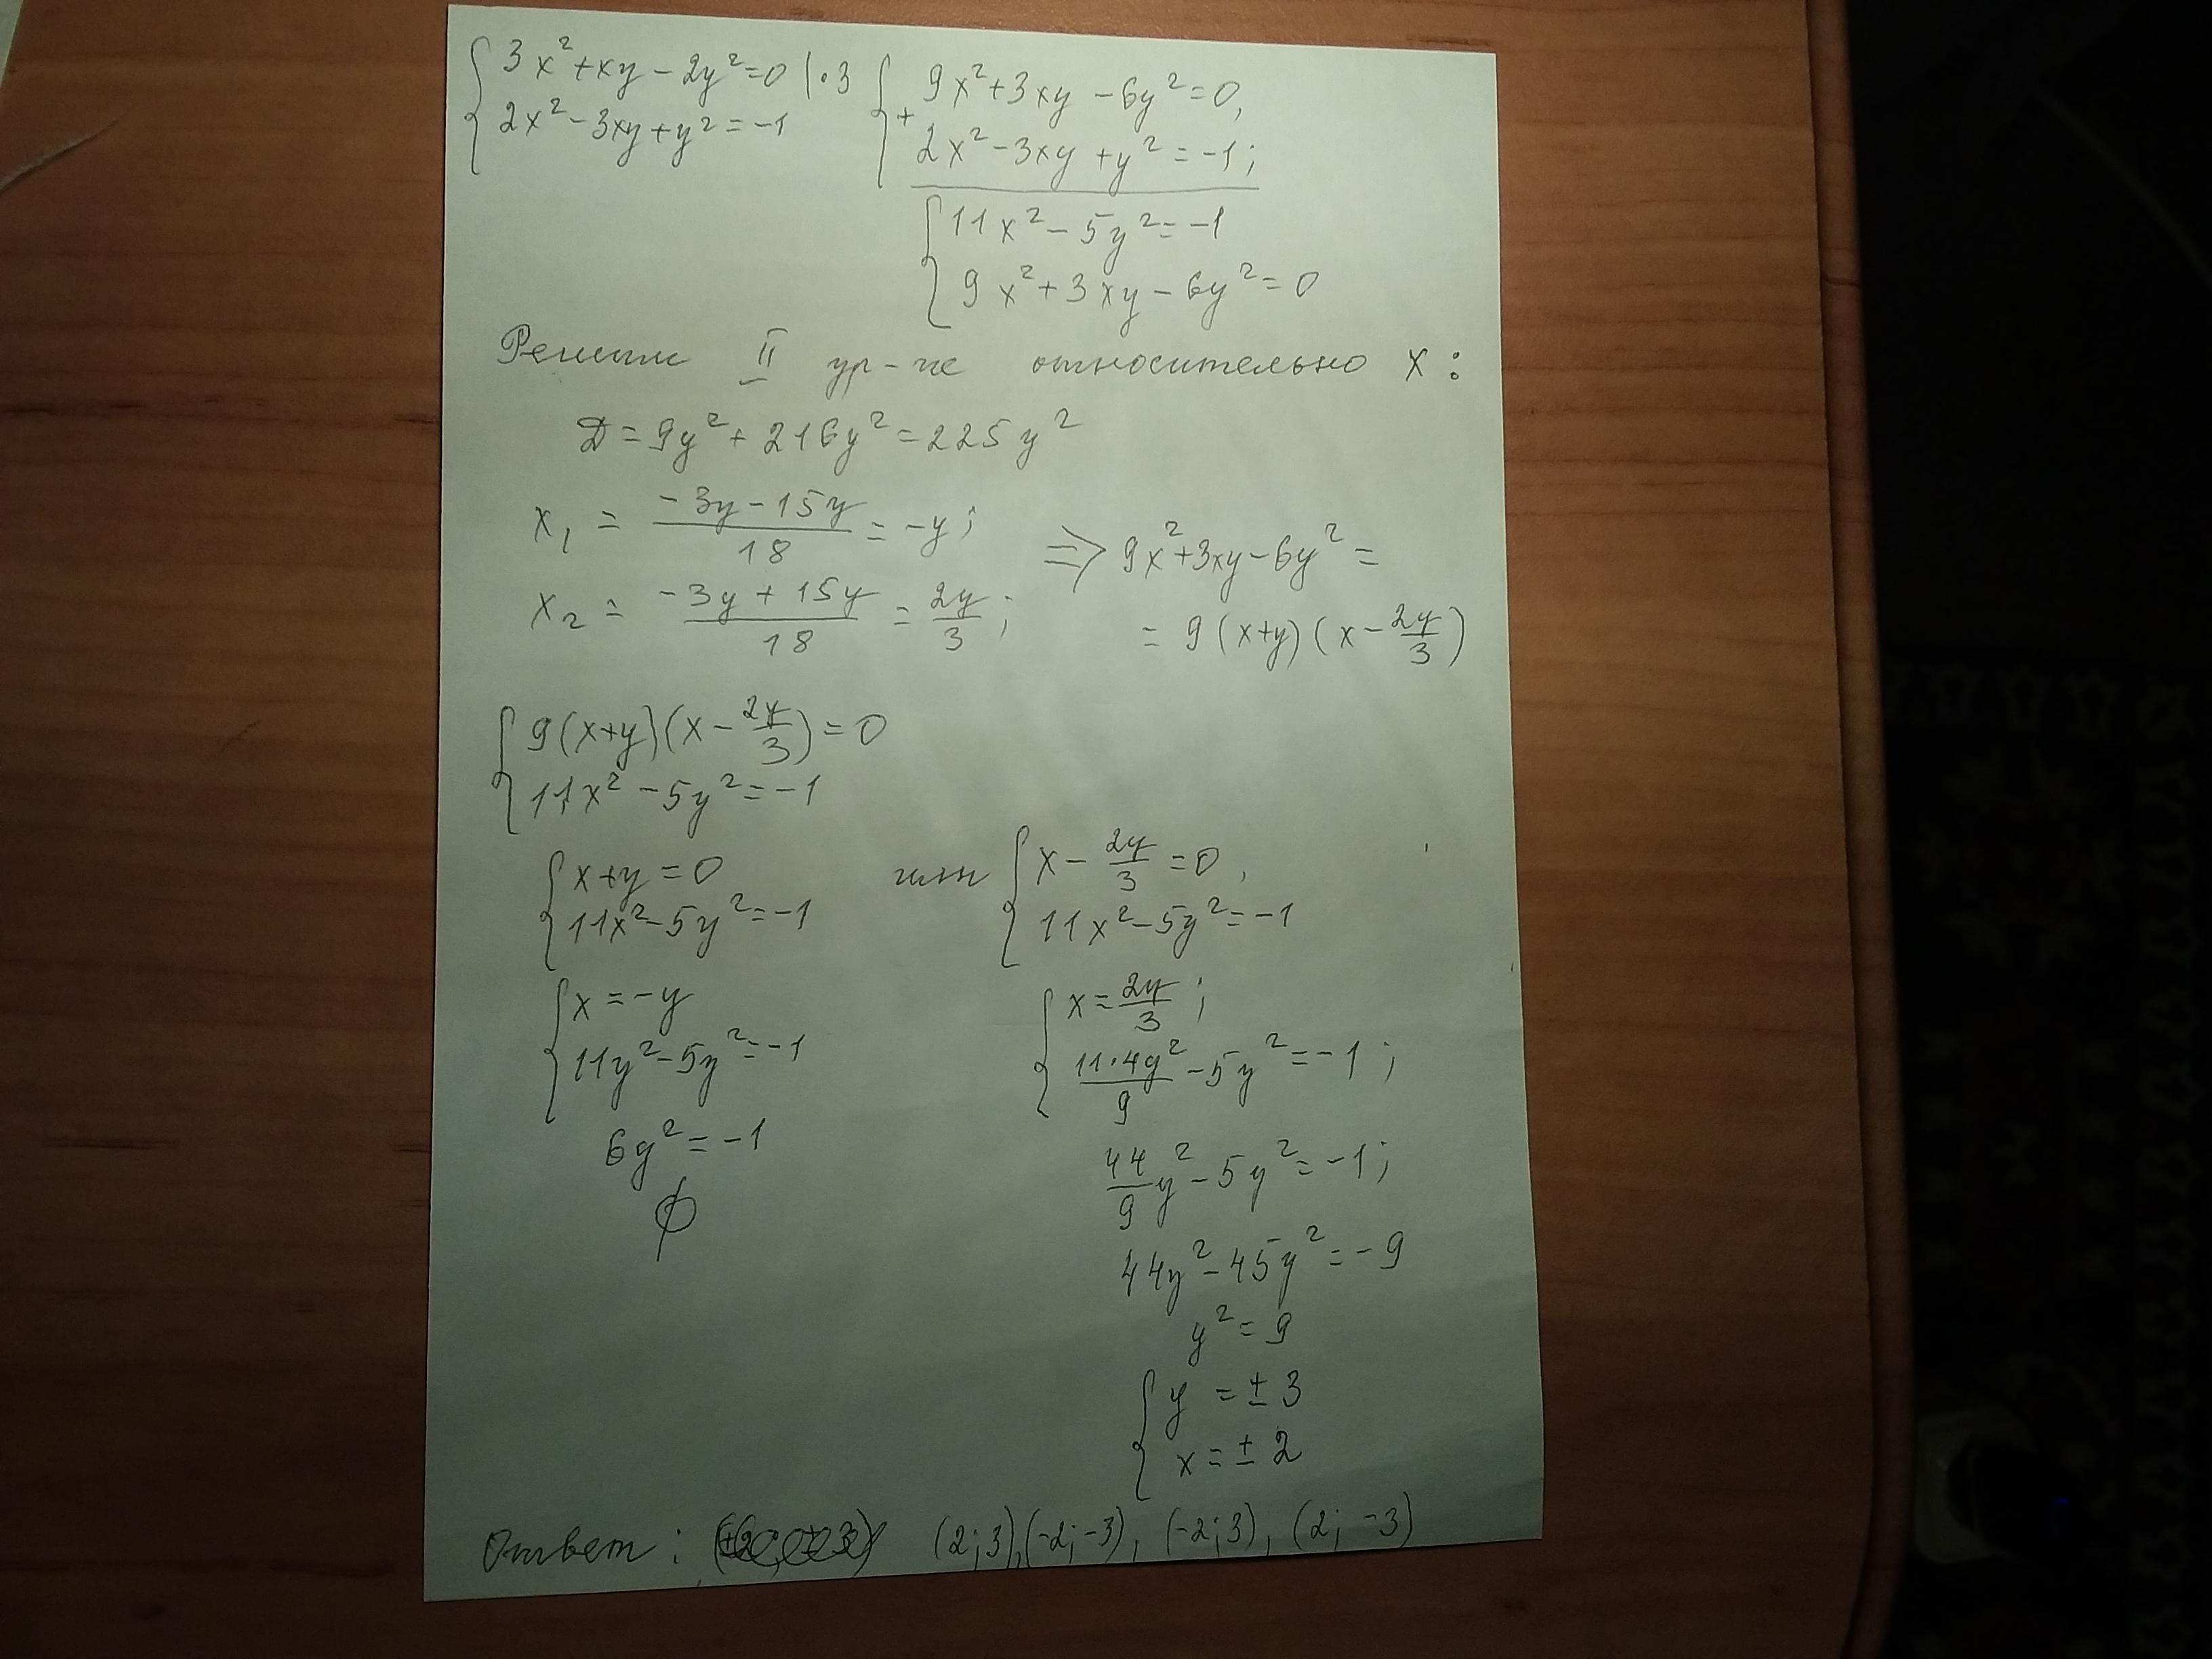 { 3x² + xy − 2y² = 0 | · 3
2x² − 3xy + y² = −1
{ 9x² + 3xy − 6y² = 0,
+ 2x² − 3xy + y² = −1;
{ 11x² − 5y² = −1
9x² + 3xy − 6y² = 0
Решим II ур-ие относительно x:
Д = 9y² + 216y² = 225y²
x₁ = (−3y − 15y)/18 = −y;
x₂ = (−3y + 15y)/18 = 2y/3;
⇒ 9x² + 3xy − 6y² =
= 9(x+y)(x − 2y/3)
{ 9(x+y)(x − 2y/3) = 0
11x² − 5y² = −1
{ x + y = 0
11x² − 5y² = −1
{ x = −y
11y² − 5y² = −1
6y² = −1
∅
или { x − 2y/3 = 0,
11x² − 5y² = −1
{ x = 2y/3;
11·4y²/9 − 5y² = −1;
44/9 y² − 5y² = −1;
44y² − 45y² = −9
y² = 9
{ y = ± 3
x = ± 2
Ответ: (2; 3), (−2; −3), (−2; 3), (2; −3)